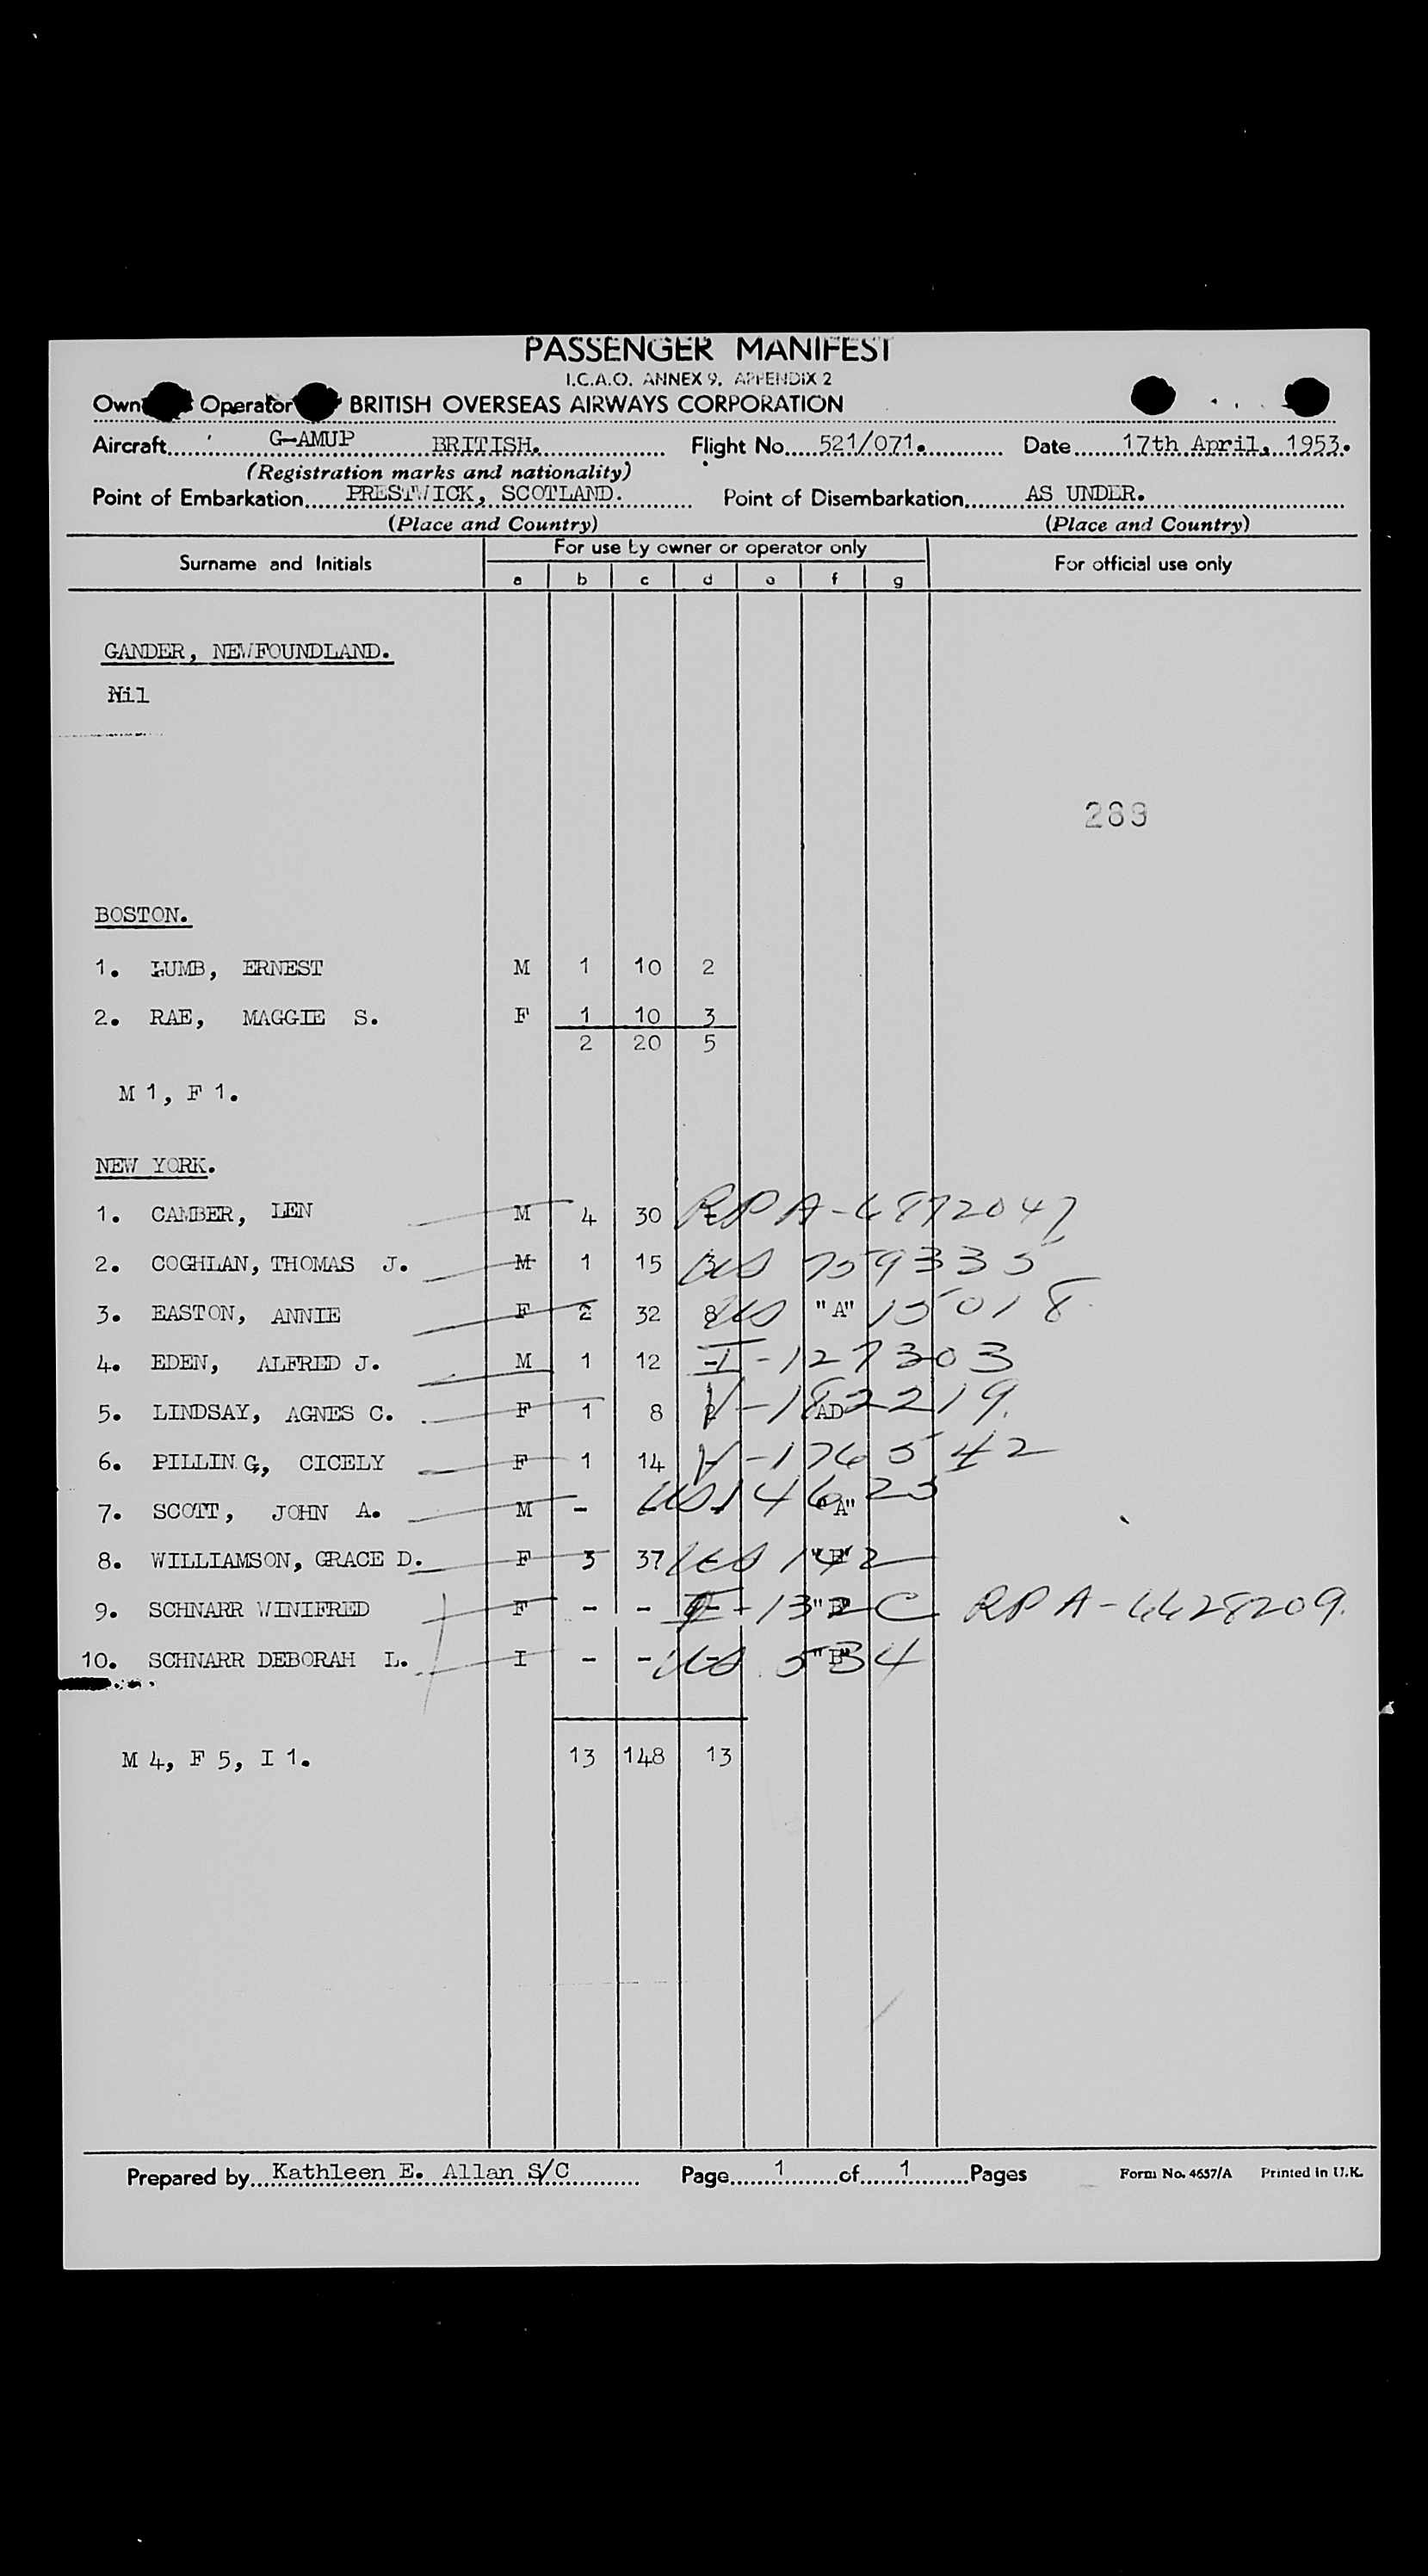 PASSENGER MANIFEST
I.C.A.O. ANNEX 9, APPENDIX 2
Own Operator BRITISH OVERSEAS AIRWAYS CORPORATION
Aircraft G-AMUP BRITISH. Flight No. 521/071. Date 17th April, 1953.
(Registration marks and nationality)
Point of Embarkation PRESTWICK, SCOTLAND. Point of Disembarkation AS UNDER.
(Place and Country) (Place and Country)
Surname and Initials For use by owner or operator only For official use only
a b c d e f g
GANDER, NEWFOUNDLAND.
Nil
283
BOSTON.
1. LUMB, ERNEST M 1 10 2
2. RAE, MAGGIE S. F 1 10 3
2 20 5
M 1, F 1.
NEW YORK.
1. CAMBER, LEN M 4 30 RP A-6872047
2. COGHLAN, THOMAS J. M 1 15 US 759335
3. EASTON, ANNIE F 2 32 8 US "A" 15018
4. EDEN, ALFRED J. M 1 12 I-127303
5. LINDSAY, AGNES C. F 1 8 2 V-182219 AD
6. PILLING, CICELY F 1 14 V-176542
7. SCOTT, JOHN A. M - US 14623 "A"
8. WILLIAMSON, GRACE D. F 3 37 US 142
9. SCHNARR WINIFRED F - - I-132C RP A-6628209.
10. SCHNARR DEBORAH L. I - - US 534 "B"
M 4, F 5, I 1. 13 148 13
Prepared by Kathleen E. Allan S/C Page 1 of 1 Pages Form No. 4657/A Printed in U.K.